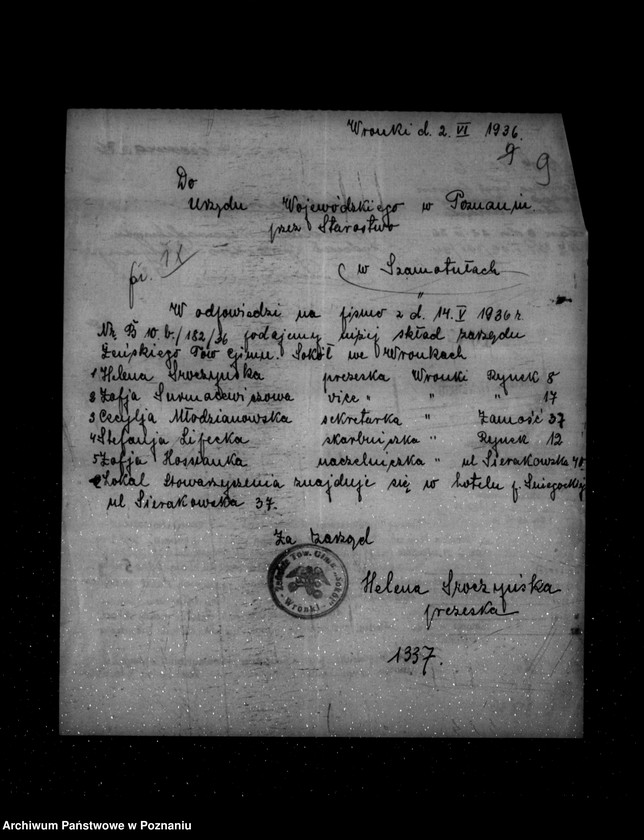 Wronki d. 2. VI 1936.
9 9
Do
Urzędu Wojewódzkiego w Poznaniu.
przez Starostwo
pr. IX
w Szamotułach
W odpowiedzi na pismo z d. 14. V 1936 r.
Nr. 10. b./182/36 podajemy niżej skład zarządu
Żeńskiego Tow Gimn. Sokół we Wronkach
1 Helena Sroczyńska prezeska Wronki Rynek 8
2 Zofja Surmacewiczowa vice " " " 17
3 Cecylja Młodzianowska sekretarka " Zamość 37
4 Stefanja Lipecka skarbniczka " Rynek 12
5 Zofja naczelniczka " ul Sierakowska
Lokal Stowarzyszenia znajduje się w hotelu p.
ul Sierakowska 37.
Za zarząd
Żeńskie Tow. Gimn. "Sokół" Wronki
Helena Sroczyńska
prezeska
1337.
Archiwum Państwowe w Poznaniu